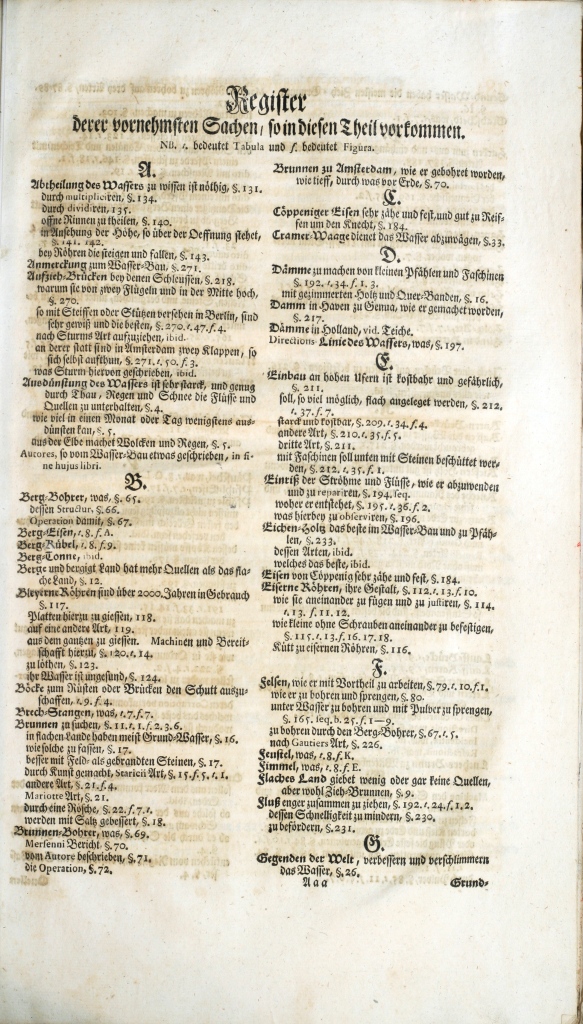 Register
derer vornehmsten Sachen, so in diesen Theil vorkommen.
NB. t. bedeutet Tabula und f. bedeutet Figura.
A.
Abtheilung des Wassers zu wissen ist nöthig, §. 131.
durch multipliciren, §. 134.
durch dividiren, 135.
offne Rinnen zu theilen, §. 140.
in Ansehung der Höhe, so über der Oeffnung stehet,
§. 141. 142.
bey Röhren die steigen und fallen, §. 143.
Anmerckung zum Wasser-Bau, §. 271.
Aufzieh-Brücken bey denen Schleussen, §. 218.
warum sie von zwey Flügeln und in der Mitte hoch,
§. 270.
so mit Steiffen oder Stützen versehen in Berlin, sind
sehr gewiß und die besten, §. 270. t. 47. f. 4.
nach Sturms Art aufzuziehen, ibid.
an derer statt sind in Amsterdam zwey Klappen, so
sich selbst aufthun, §. 271. t. 50. f. 3.
was Sturm hiervon geschrieben, ibid.
Ausdünstung des Wassers ist sehr starck, und genug
durch Thau, Regen und Schnee die Flüsse und
Quellen zu unterhalten, §. 4.
wie viel in einen Monat oder Tag wenigstens aus-
dünsten kan, §. 5.
aus der Elbe machet Wolcken und Regen, §. 5.
Autores, so vom Wasser-Bau etwas geschrieben, in fi-
ne hujus libri.
B.
Berg-Bohrer, was, §. 65.
dessen Structur, §. 66.
Operation damit, §. 67.
Berg-Eisen, t. 8. f. A.
Berg-Kübel, t. 8. f. 9.
Berg-Tonne, ibid.
Berge und bergigt Land hat mehr Quellen als das fla-
che Land, §. 12.
Bleyerne Röhren sind über 2000. Jahren in Gebrauch
§. 117.
Platten hierzu zu giessen, 118.
auf eine andere Art, 119.
aus den gantzen zu giessen. Machinen und Bereit-
schafft hierzu, §. 120. t. 14.
zu löthen, §. 123.
ihr Wasser ist ungesund, §. 124.
Böcke zum Rüsten oder Brücken den Schutt auszu-
schaffen, t. 9. f. 4.
Brech-Stangen, was, t. 7. f. 7.
Brunnen zu suchen, §. 11. t. 1. f. 2. 3. 6.
in flachen Lande haben meist Grund-Wasser, §. 16.
wie solche zu fassen, §. 17.
besser mit Feld- als gebrandten Steinen, §. 17.
durch Kunst gemacht, Staricii Art, §. 15. f. 5. t. 1.
andere Art, §. 21. f. 4.
Mariotte Art, §. 21.
durch eine Rösche, §. 22. f. 7. t.
werden mit Saltz gebessert, §. 18.
Brunnen-Bohrer, was, §. 69.
Mersenni Bericht §. 70.
vom Autore beschrieben, §. 71.
die Operation, §. 72.
Brunnen zu Amsterdam, wie er gebohret worden,
wie tieff, durch was vor Erde, §. 70.
C.
Cöppeniger Eisen sehr zähe und fest, und gut zu Reif-
fen um den Knecht, §. 184.
Cramer-Waage dienet das Wasser abzuwägen, §. 33.
D.
Dämme zu machen von kleinen Pfählen und Faschinen
§. 192. t. 34. f. 1. 3.
mit gezimmerten Holtz und Quer-Banden, §. 16.
Damm in Haven zu Genua, wie er gemacht worden,
§. 217.
Dämme in Holland, vid. Teiche.
Directions-Linie des Wassers, was, §. 197.
E.
Einbau an hohen Ufern ist kostbahr und gefährlich,
§. 211.
soll, so viel möglich, flach angeleget werden, §. 212.
t. 37. f. 7.
starck und kostbar, §. 209. t. 34. f. 4.
andere Art, §. 210. t. 35. f. 5.
dritte Art, §. 211.
mit Faschinen soll unten mit Steinen beschüttet wer-
den, §. 212. t. 35. f. 1.
Einriß der Ströhme und Flüsse, wie er abzuwenden
und zu repariren, §. 194. seq.
woher er entstehet, §. 195. t. 36. f. 2.
was hierbey zu observiren, §. 196.
Eichen-Holtz das beste im Wasser-Bau und zu Pfäh-
len, §. 233.
dessen Arten, ibid.
welches das beste, ibid.
Eisen von Cöppenig sehr zähe und fest, §. 184.
Eiserne Röhren, ihre Gestalt, §. 112. t. 13. f. 10.
wie sie aneinander zu fügen und zu justiren, §. 114.
t. 13. f. 11. 12.
wie kleine ohne Schrauben aneinander zu befestigen,
§. 115. t. 13. f. 16. 17. 18.
Kütt zu eisernen Röhren, §. 116.
F.
Felsen, wie er mit Vortheil zu arbeiten, §. 79. t. 10. f. 1.
wie er zu bohren und sprengen, §. 80.
unter Wasser zu bohren und mit Pulver zu sprengen,
§. 165. seq. t. 25. f. 1—9.
zu bohren durch den Berg-Bohrer, §. 67. t. 5.
nach Gautiers Art, §. 226.
Feustel, was, t. 8. f. K.
Fimmel, was, t. 8. f. E.
Flaches Land giebet wenig oder gar keine Quellen,
aber wohl Zieh-Brunnen, §. 9.
Fluß enger zusammen zu ziehen, §. 192. t. 24. f. 1. 2.
dessen Schnelligkeit zu mindern, §. 230.
zu befördern, §. 231.
G.
Gegenden der Welt, verbessern und verschlimmern
das Wasser, §. 26.
A a a
Grund-